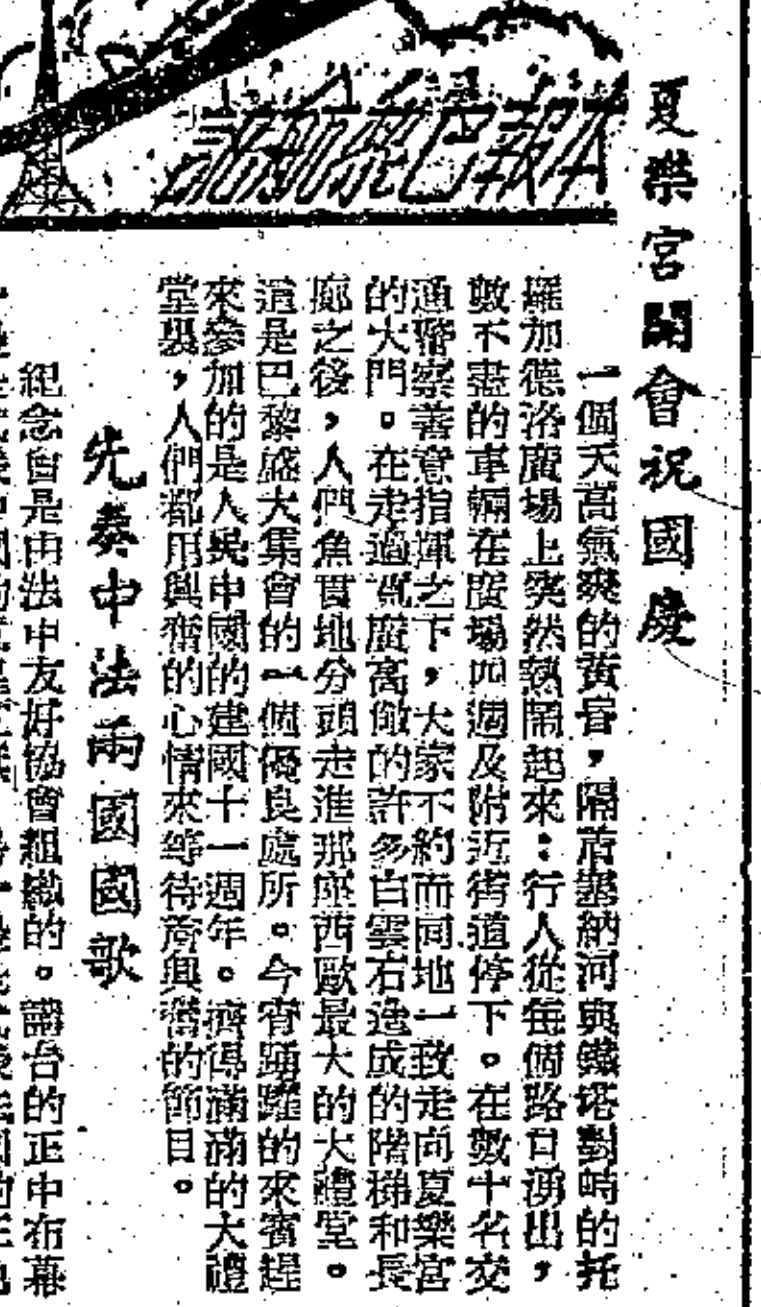 本報巴黎航訊
夏樂宮開會祝國慶
一個天高氣爽的黃昏，隔着塞納河與鐵塔對峙的托
羅加德洛廣場上突然熱鬧起來：行人從每個路口湧出，
數不盡的車輛在廣場四週及附近街道停下。在數十名交
通警察善意指揮之下，大家不約而同地一致走向夏樂宮
的大門。在走過寬廣高敞的許多白雲石造成的階梯和長
廊之後，人們魚貫地分頭走進那座西歐最大的大禮堂。
這是巴黎盛大集會的一個優良處所。今宵踴躍的來賓趕
來參加的是人民中國的建國十一週年。擠得滿滿的大禮
堂裏，人們都用興奮的心情來等待着興奮的節目。
先奏中法兩國國歌
紀念會是由法中友好協會組織的。講台的正中布幕